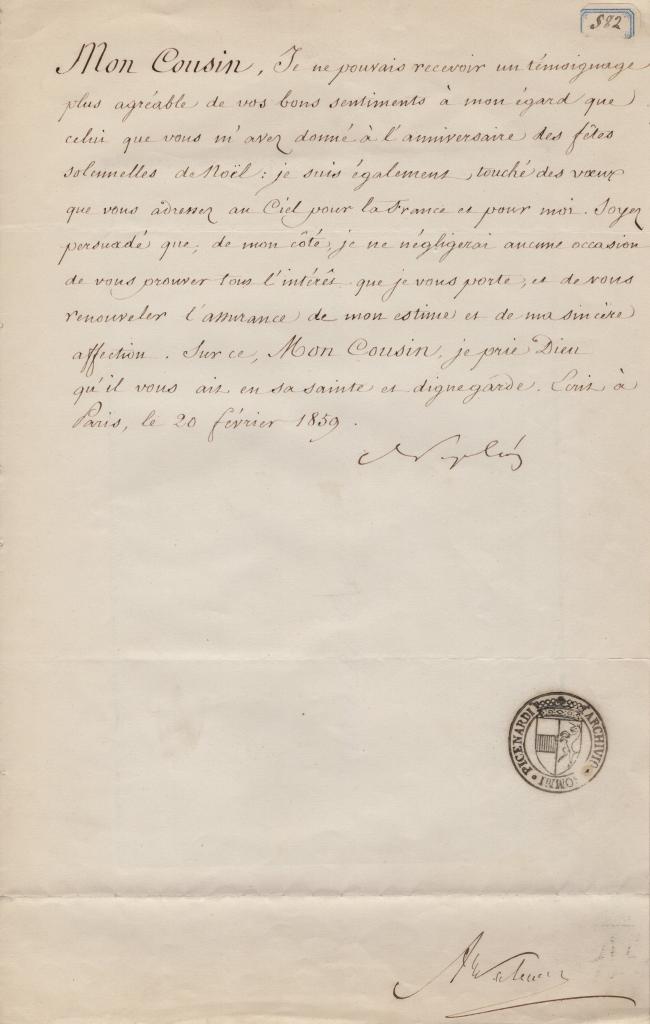 882
Mon Cousin, Je ne pouvais recevoir un témoignage
plus agréable de vos bons sentiments à mon égard que
celui que vous m'avez donné à l'anniversaire des fêtes
solennelles de Noël : je suis également touché des vœux
que vous adressez au Ciel pour la France et pour moi. Soyez
persuadé que, de mon côté, je ne négligerai aucune occasion
de vous prouver tout l'intérêt que je vous porte, et de vous
renouveler l'assurance de mon estime et de ma sincère
affection. Sur ce, Mon Cousin, je prie Dieu
qu'il vous ait en sa sainte et digne garde. Ecrit à
Paris, le 20 février 1859.
Napoléon
ARCHIVIO SOMMI PICENARDI